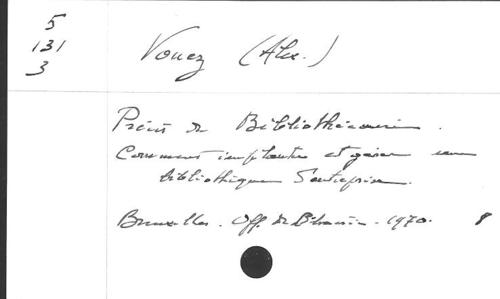 5
131
3
Vouez (Alex.)
Précis de Bibliothéconomie.
Comment implanter et gérer une
bibliothèque d'entreprise.
Bruxelles. Off. de Librairie. 1970. 8